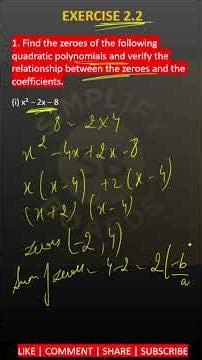 EXERCISE 2.2
1. Find the zeroes of the following
quadratic polynomials and verify the
relationship between the zeroes and the
coefficients.
(i) x² – 2x – 8
8 – 2×4
x² – 4x + 2x – 8
x (x – 4) + 2 (x – 4)
(x + 2) (x – 4)
zeroes (–2, 4)
Sum of zeroes = 4 – 2 = 2 (–b/a
LIKE | COMMENT | SHARE | SUBSCRIBE